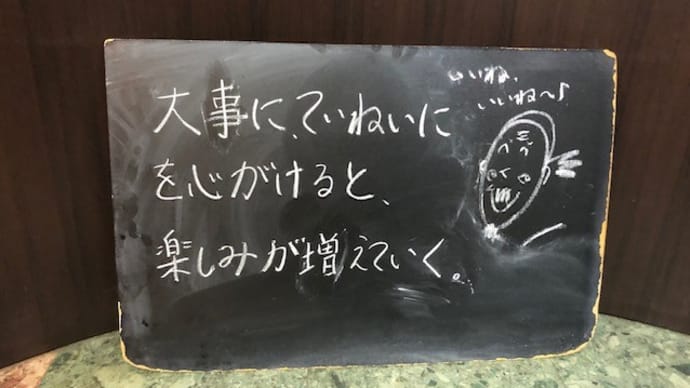 大事に、ていねいに
を心がけると、
楽しみが増えていく。
いいね、
いいね〜♪